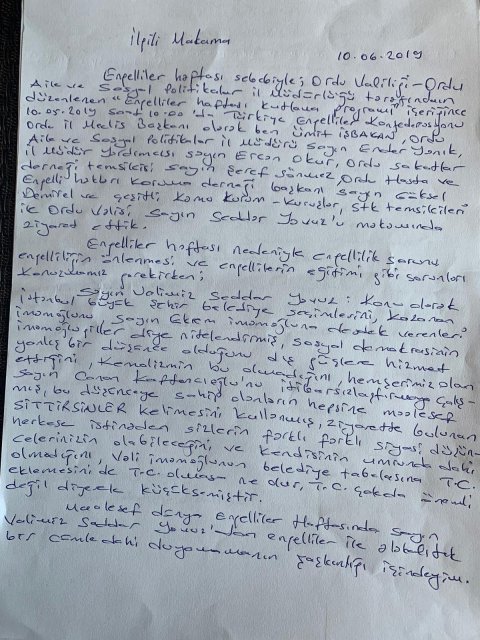 İlgili Makama
10.06.2019
Engelliler haftası sebebiyle; Ordu Valiliği - Ordu
Aile ve Sosyal Politikalar il Müdürlüğü tarafından
düzenlenen "Engelliler haftası kutlama programı" içeriğince
10.05.2019 saat 10.00'da Türkiye Engelliler Konfederasyonu
Ordu il Meclis Başkanı olarak ben Ümit İŞBAKAN, Ordu
Aile ve Sosyal Politikalar il Müdürü Sayın Ender Yanık,
il Müdür Yardımcısı sayın Ercan Okur, Ordu sakatlar
derneği temsilcisi sayın Şeref Sönmez, Ordu Hasta ve
Engelli hakları koruma derneği başkanı sayın Göksel
Demirel ve çeşitli kamu kurum-kuruluş, stk temsilcileri
ile Ordu Valisi Sayın Seddar Yavuz'u makamında
ziyaret ettik.
Engelliler haftası nedeniyle engellilik sorunu
engelliliğin önlenmesi ve engellilerin eğitimi gibi sorunları
konuşmamız gerekirken;
Sayın Valimiz Seddar Yavuz: Konu olarak
İstanbul büyük şehir belediye seçimlerini, kazanan
imamoğlunu sayın Ekrem imamoğluna destek verenleri
imamoğlugiller diye nitelendirmiş, sosyal demokrasinin
yanlış bir düşünce olduğunu dış güçlere hizmet
ettiğini, Kemalizmin bu olmadığını, hemşerimiz olan
Sayın Canan Kaftancıoğlu'nu itibarsızlaştırmaya çalış-
mış, bu düşünceye sahip olanların hepsine maalesef
SİTTİRSİNLER kelimesini kullanmış, ziyarette bulunan
herkese istinaden sizlerin farklı farklı siyasi düşün-
celerinizin olabileceğini ve kendisinin umrunda dahi
olmadığını, Vali imamoğlunun belediye tabelasına T.C.
eklemesini de T.C. olmasa ne olur, T.C. çokda önemli
değil diyerek küçüksemiştir.
Maalesef dünya Engelliler Haftasında sayın
Valimiz Seddar Yavuz'dan engelliler ile alakalı tek
bir cümle dahi duyamamanın şaşkınlığı içindeyim.